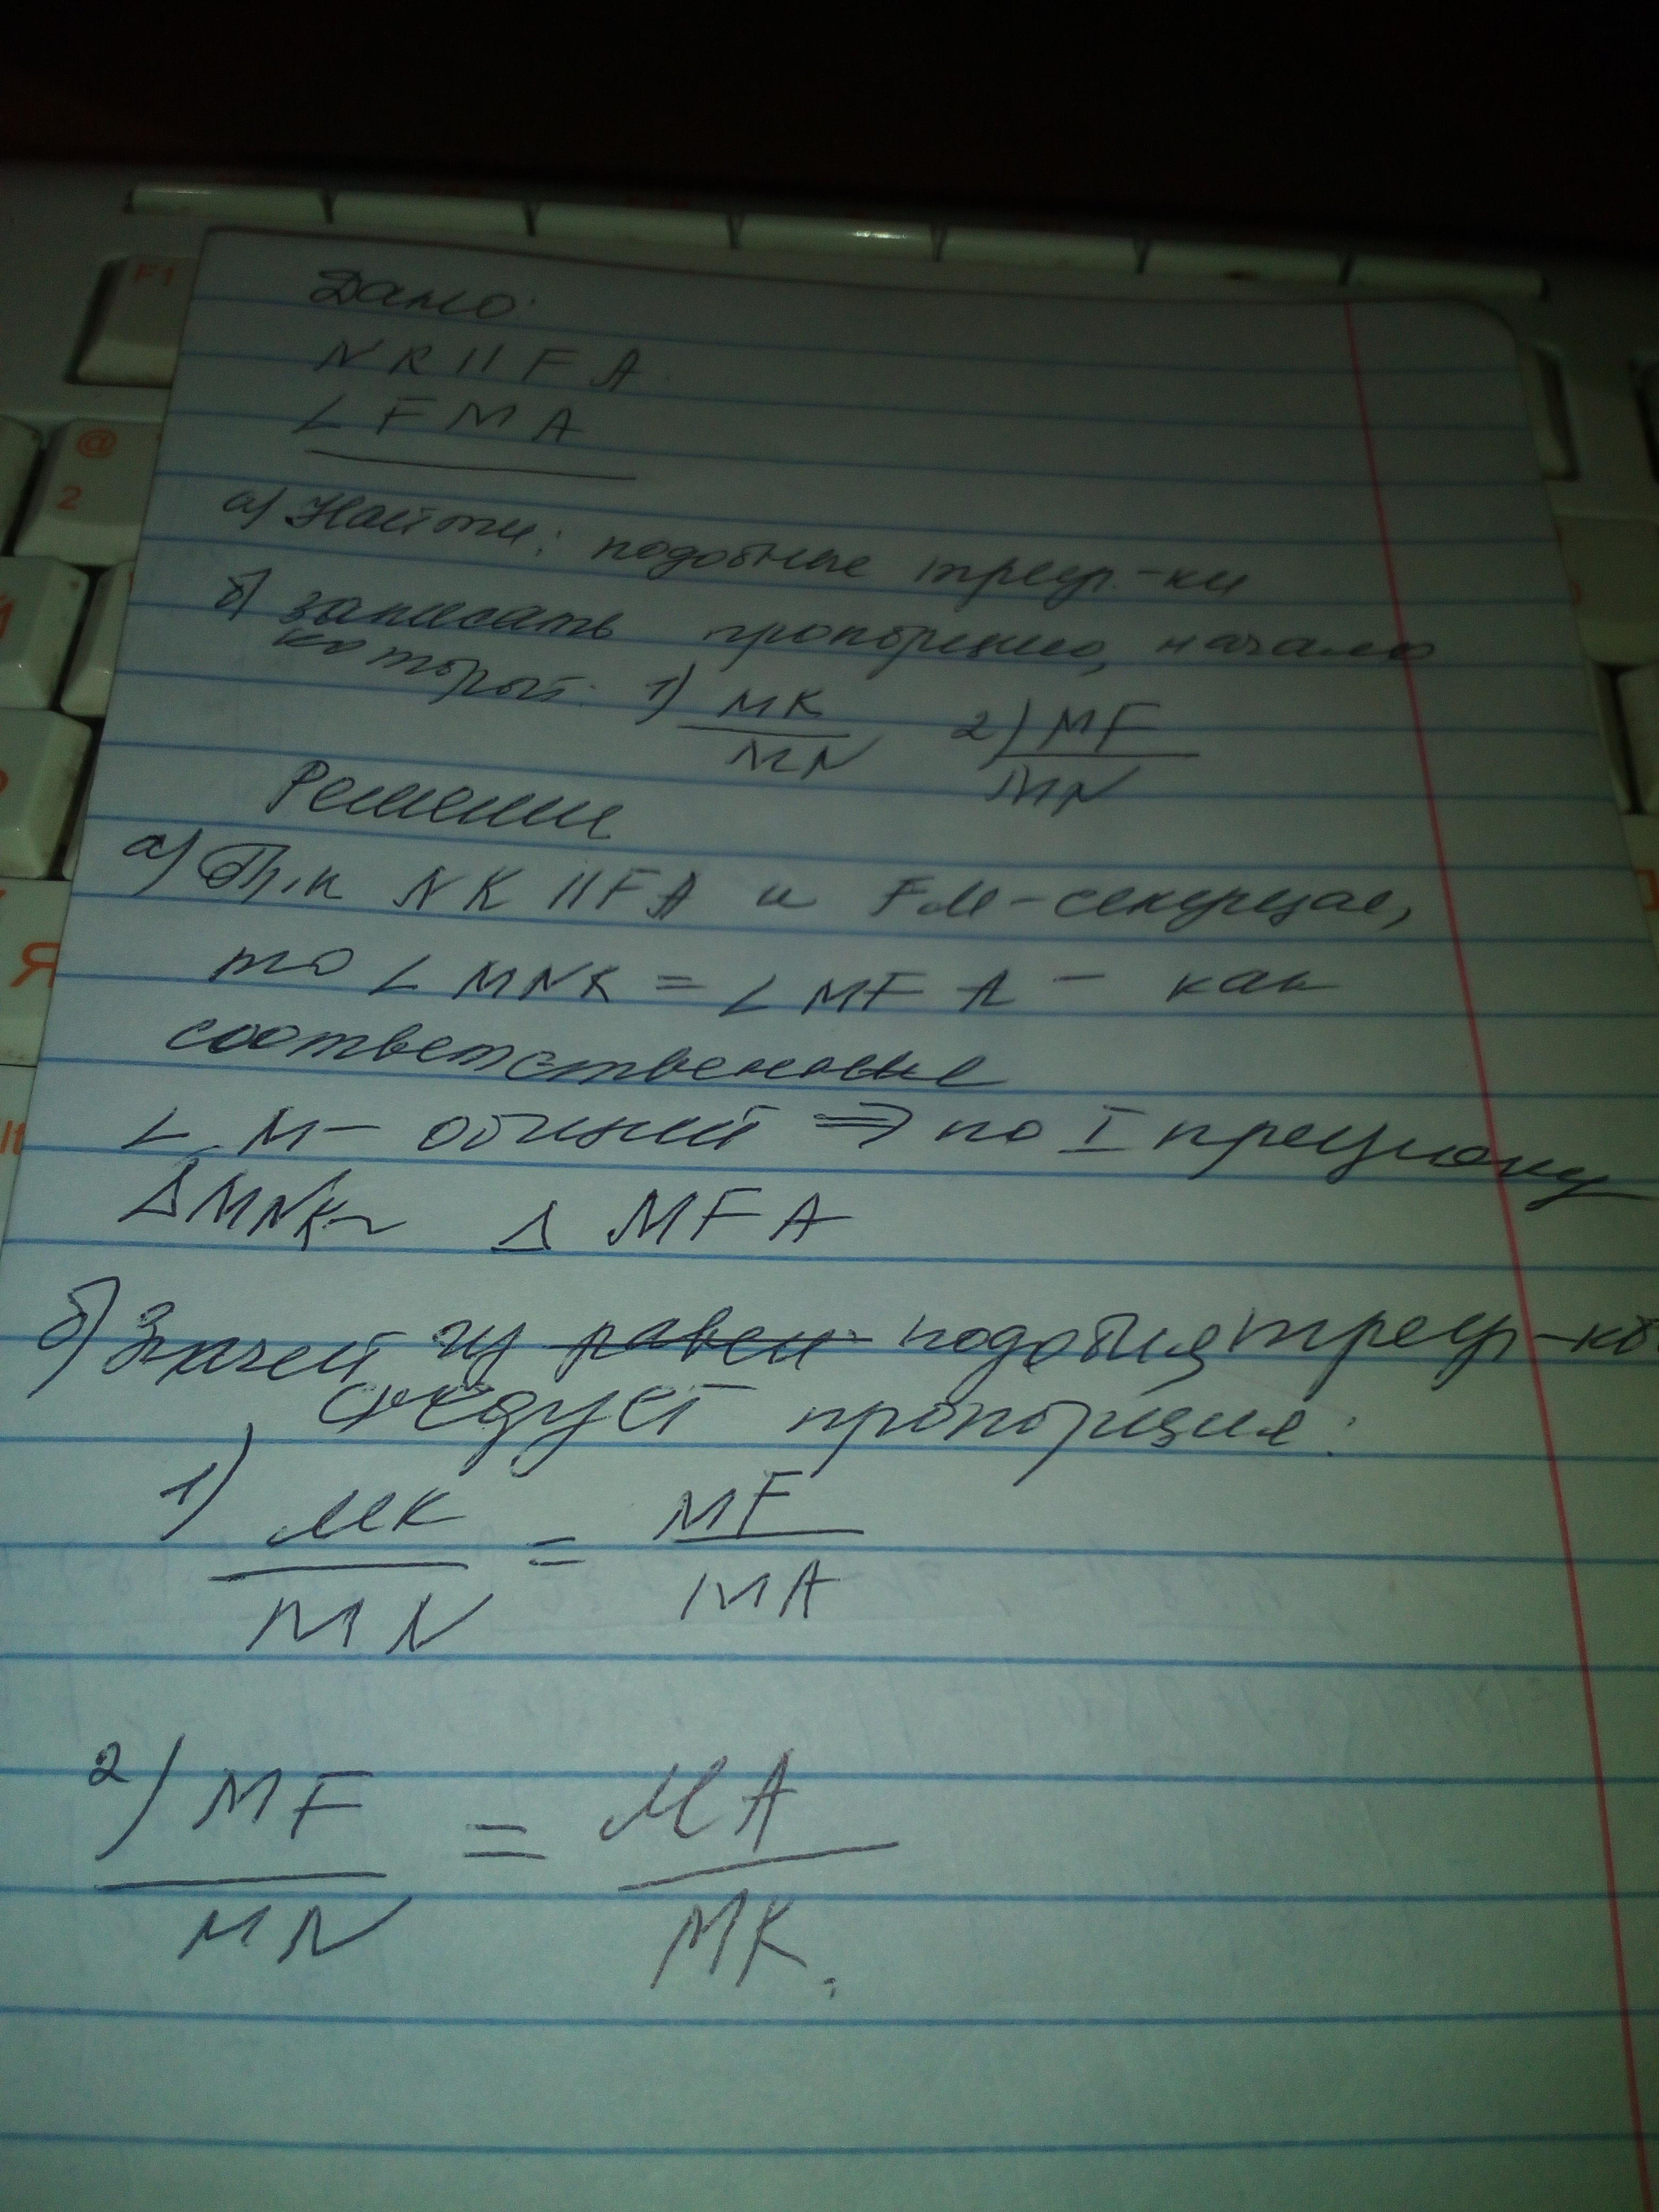 Дано:
NK || FA
∠ FMA
а) Найти: подобные треуг.-ки
б) записать пропорцию, начало
которой: 1) MK/MN 2) MF/MN
Решение
а) Т.к NK || FA и FM - секущая,
то ∠ MNK = ∠ MFA - как
соответственные
∠ M - общий ⇒ по I признаку
ΔMNK ~ Δ MFA
б) Значит из равен подобия треуг-ков
следует пропорция:
1) MK/MN = MF/MA
2) MF/MN = MA/MK.
F1
@
2
Я